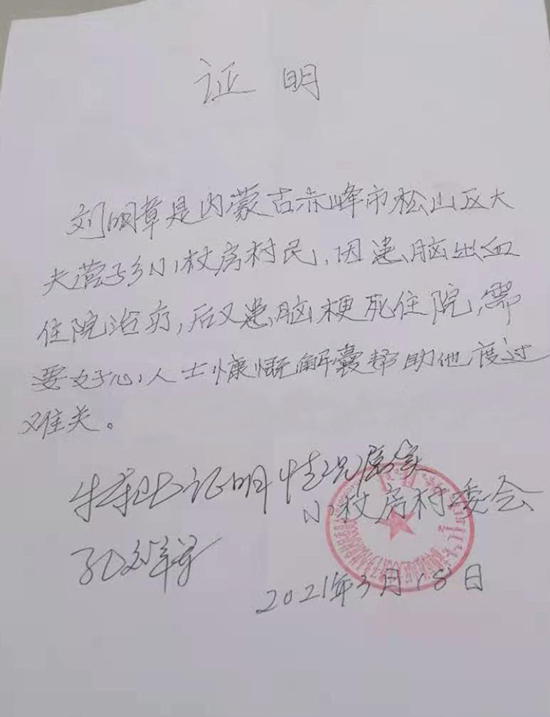 证明
刘明草是内蒙古赤峰市松山区大
夫营子乡小枚房村民,因患脑出血
住院治疗,后又患脑梗死住院,需
要好心人士慷慨解囊帮助他度过
难关。
特此证明 情况属实
小枚房村委会
2021年3月18日